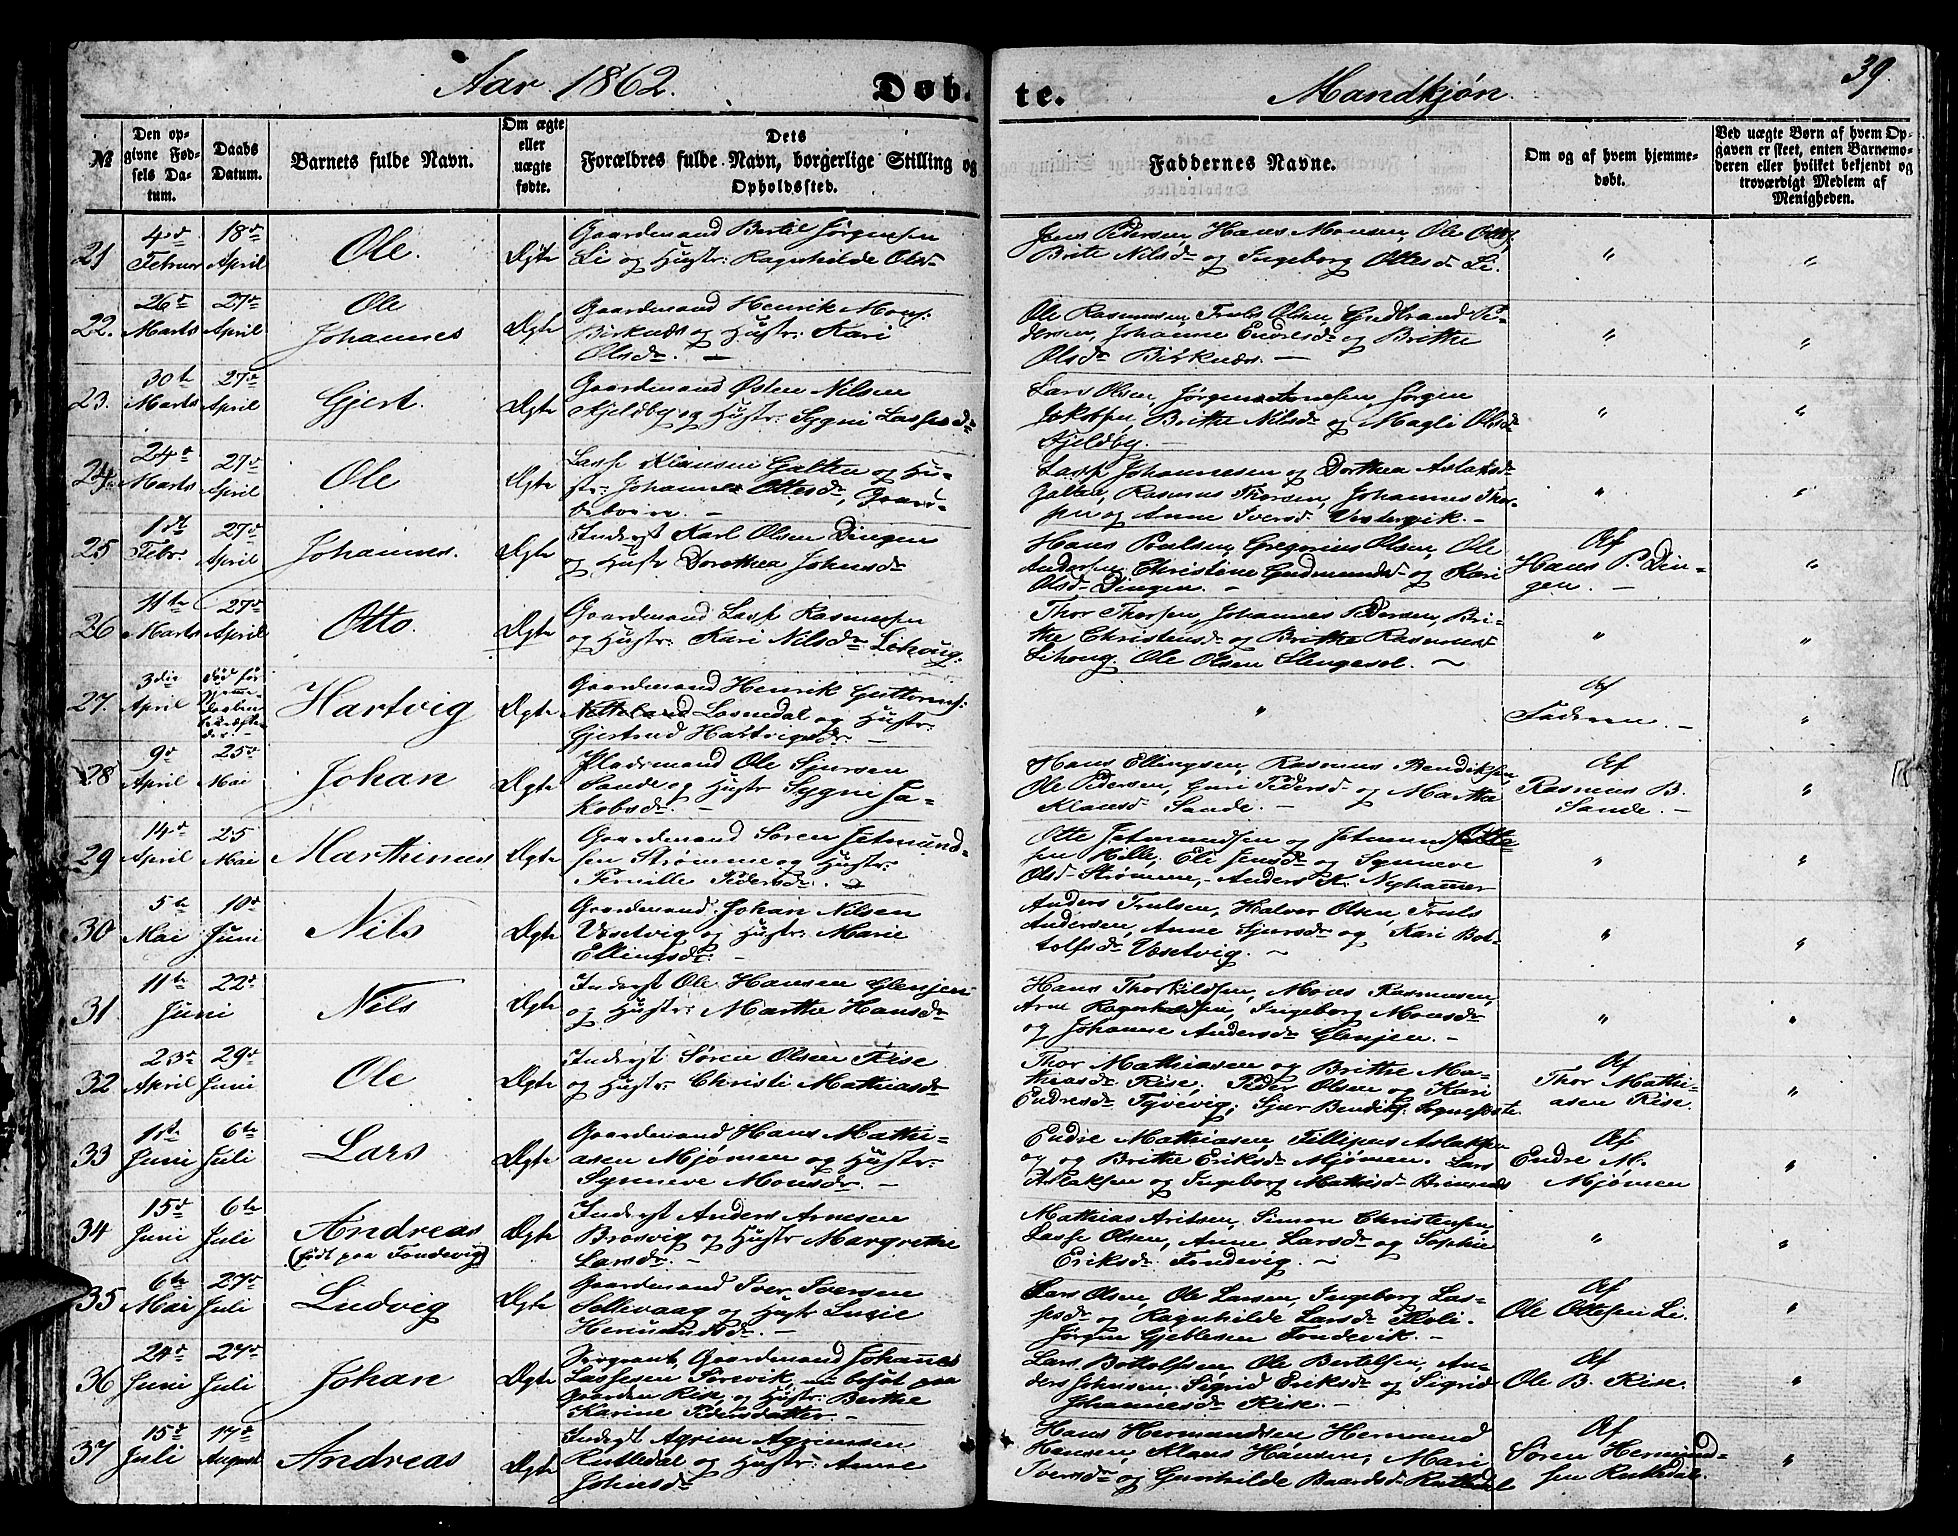 Aar 1862. Døb- te. Mandkjøn. 39.
№
Den op-
givne Fød-
sels Da-
tum.
Daabs
Datum.
Barnets fulde Navn.
Om ægte
eller
uægte
fødte.
Dets
Forældres fulde Navn, borgerlige Stilling og
Opholdssted.
Faddernes Navne.
Om og af hvem hjemme-
døbt.
Ved uægte Børn af hvem Op-
gaven er skeet, enten Barnemo-
deren eller hvilket bekjendt og
troværdigt Medlem af
Menigheden.
21
4de Februar
18de April
Ole.
Ægte
Gaardmand Bertil Jørgensen
Li og Hustr: Ragnhilde Olsdr
Jens Pedersen, Hans Monsen, Ole
Brite Nilsdr og Ingeborg Ottesdr Li.
"
"
22.
26de Marts
27de April
Ole
Johannes
Ægte
Gaardmand Henrik Mons:
Birknæs og Hustr: Kari
Olsdr. —
Ole Rasmusen, Truls Olsen, Gudbrand Pe-
dersen, Johanne Endresdr og Brithe
Olsdr Birknæs. —
"
"
23.
30te Marts
27de April
Gjert.
Ægte
Gaardmand Østen Nilsen
Kjeldby og Hustr: Sygni Lassesdr
Lars Olsen, Jørgen Arnesen, Jørgen
Jakobsen, Brithe Nilsdr og Magli Olsdr
Kjeldby. —
"
"
24.
24de Marts
27de April
Ole
Ægte
Lasse Klausen Galten og Hu-
str: Johanne Ottesdr, Gaard-
beboere. —
Lasse Johannesen og Dorthea Aslaksdr
Galten, Rasmus Thorsen, Johannes Thor-
sen og Anne Iversdr Vestervik. —
"
"
25
1ste Febr.
27de April
Johannes.
Ægte
Inderst Karl Olsen Dingen
og Hustr Dorothea Johnsdr
Hans Poulsen, Gregorius Olsen, Ole
Andersen, Christine Gudmundsdr og Kari
Olsdr Dingen. —
Af
Hans P. Din-
gen. —
"
26
11te Marts
27de April
Otto.
Ægte
Gaardmand Lasse Rasmusen
og Hustr: Kari Nilsdr Lihoug.
Thor Thorsen, Johannes Pedersen, Bri-
the Christensdr og Brithe Rasmusdr
Lihoug. Ole Olsen Slengesol. —
"
"
27.
3die April
Død før
Hjartvig
Hartvig
Ægte
Gaardmand Henrik Guttorms:
Losnedal og Hustr:
Gjertrud Hartvigsdr. —
"
Af
Faderen. —
"
28
9de April
25de Mai
Johan
Ægte
Pladsmand Ole Sjursen
Sande og Hustr Sygni Ja-
kobsdr. —
Hans Ellingsen, Rasmus Bendiksen
Ole Pedersen, Guri Pedersdr og Martha
Klausdr Sande. —
Af
Rasmus B.
Sande. —
"
29
14de April
25 Mai
Marthinus
Ægte
Gaardmand Søren Jetmund-
sen Strømme og Hustr:
Pernille Pedersdr. —
Otte Jetmundsen og Jetmund Otte-
sen Hille, Eli Jensdr og Synneve
Olsdr Strømme, Anders K. Nyhamer
"
"
30
5te Mai
10de Juni
Nils
Ægte
Gaardmand Johan Nilsen
Vosetvig og Hustr: Marie
Ellingsdr. —
Anders Trulsen, Halvor Olsen, Truls
Andersen, Anne Sjursdr og Kari Bot-
tolfsdr Vosetvig. —
"
"
31
11te Juni
22de
Nils
Ægte
Inderst Ole Hansen Glenjen
og Hustr: Marthe Hansdr
Hans Thorkildsen, Mons Rasmusen,
Arne Ragnvaldsen, Ingeborg Monsdr
og Johanne Andersdr Glenjen. —
"
"
32
23de April
29de Juni
Ole
Ægte
Inderst Søren Olsen Rise
og Hustr: Christi Mathiasdr
Thor Mathiasen og Brithe Ma-
thiasdr Rise, Peder Olsen og Kari
Endresdr Tyvevig, Sjur Bendiks. Sognefæste
Af
Thor Mathi-
asen Rise.
"
33
1ste Juni
6te Juli
Lars
Ægte
Gaardmand Hans Mathi-
asen Mjømen og Hustr:
Synneve Monsdr. —
Endre Mathiasen, Fillipus Aslaksen
og og Brithe Eriksdr Mjømen. Lars
Aslaksen og Ingeborg Mathisdr
Af
Endre M.
Mjømen
"
34
15de Juni
6te Juli
Andreas
(født paa Fondevig)
Ægte
Inderst Anders Arnesen
Brosvig og Hustr Margrethe
Larsdr. —
Mathias Aritsen, Simon Christensen,
Lasse Olsen, Anne Larsdr og Sophie
Eriksdr Fondevig. —
"
"
35
6te Mai
27de Juli
Ludvig
Ægte
Gaardmand Iver Iversen
Sollevaag og Hustr Susie
Hermundsdr. —
Lars Olsen, Ole Larsen, Ingeborg Las-
sesdr og Ragnhilde Larsdr
Jørgen Gjeblesen Fondevik. —
Af
Ole Ottesen Li.
"
36
24de Juni
27de Juli
Johan
Ægte
Sergeant, Gaardmand Johannes
Lassesen Sørevik, bosat paa
Gaarden Rise, og Hustr: Berthe
Karine Pedersdatter. —
Lars Bottolfsen, Ole Bertelsen, An-
ders Johnsen, Sigrid Eriksdr og Sigrid
Johannesdr Rise. —
Af
Ole B. Rise.
"
37
15de Juli
17de August
Andreas
Ægte
Inderst Agrim Agrimsen
Rutledal og Hustr: Anne
Johnsdr
Hans Hermandsen, Hermund
Hansen, Klaus Hansen, Mari
Iversdr og Gunhilde Baardsdr Rutledal
Af
Søren Hermund-
sen Rutledal.
"